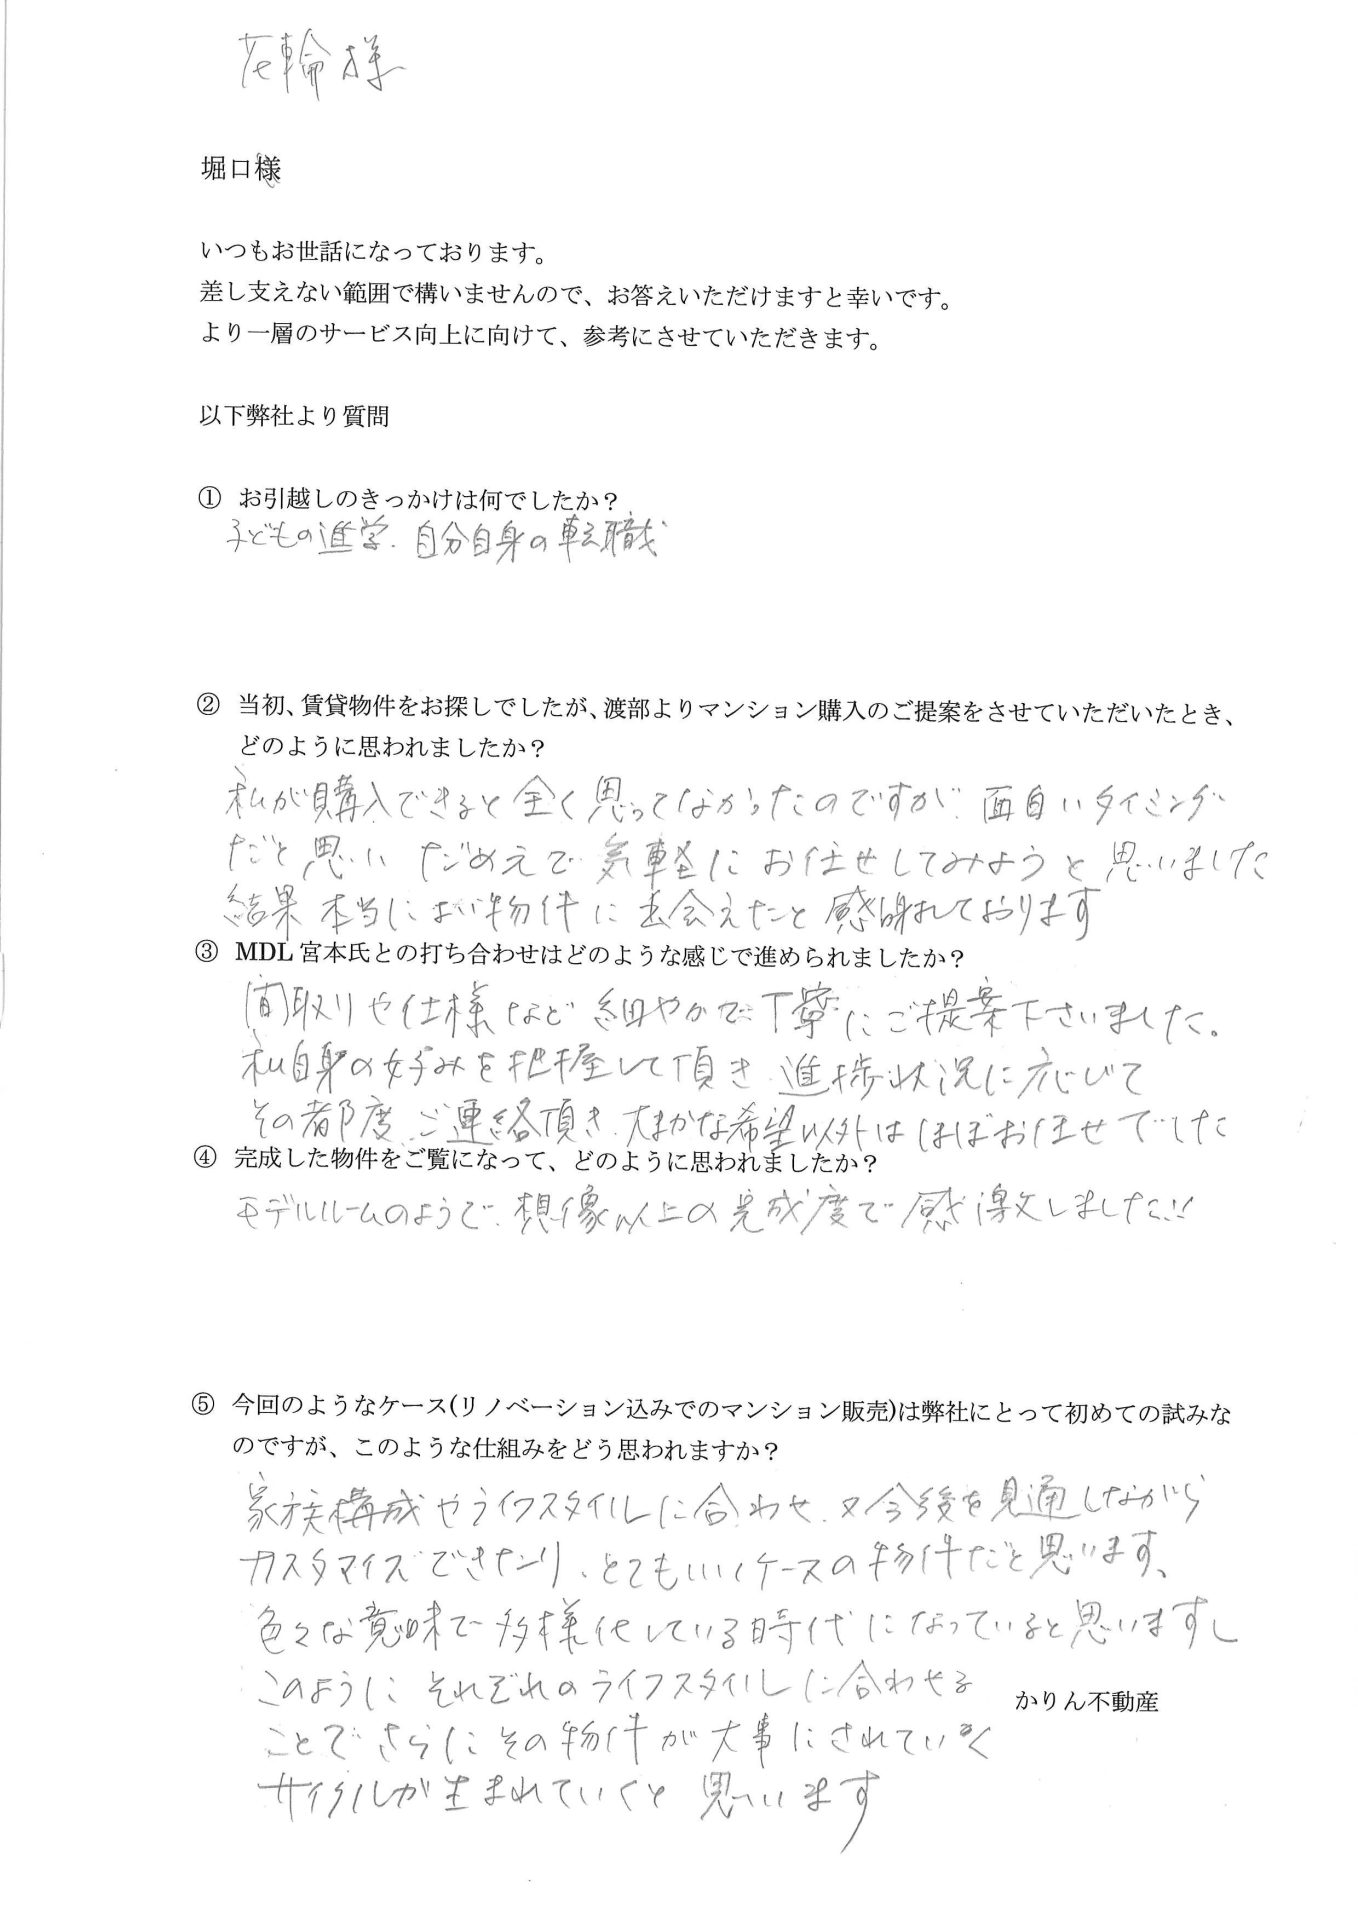 花輪様
堀口様
いつもお世話になっております。
差し支えない範囲で構いませんので、お答えいただけますと幸いです。
より一層のサービス向上に向けて、参考にさせていただきます。
以下弊社より質問
① お引越しのきっかけは何でしたか？
子どもの進学、自分自身の転職
② 当初、賃貸物件をお探しでしたが、渡部よりマンション購入のご提案をさせていただいたとき、
どのように思われましたか？
私が購入できると全く思ってなかったのですが、面白いタイミング
だと思い だめえで 気軽にお任せしてみようと思いました
結果 本当によい物件に出会えたと感謝れております
③ MDL 宮本氏との打ち合わせはどのような感じで進められましたか？
間取りや仕様など 細やかで丁寧にご提案下さいました。
私自身の好みを把握して頂き、進捗状況に応じて
その都度、ご連絡頂き、大まかな希望以外はほぼお任せでした
④ 完成した物件をご覧になって、どのように思われましたか？
モデルルームのようで、想像以上の完成度で感激しました!!
⑤ 今回のようなケース(リノベーション込みでのマンション販売)は弊社にとって初めての試みな
のですが、このような仕組みをどう思われますか？
家族構成やライフスタイルに合わせ、又今後を見通しながら
カスタマイズできたり、とてもいいケースの物件だと思います、
色々な意味で多様化している時代になっていると思いますし
このように それぞれのライフスタイルに合わせる
かりん不動産
ことで さらに その物件が大事にされていく
サイクルが生まれていくと思います